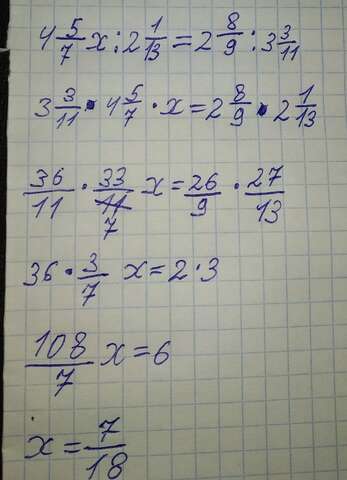 4 5/7 x : 2 1/13 = 2 8/9 : 3 3/11
3 3/11 · 4 5/7 · x = 2 8/9 · 2 1/13
36/11 · 33/11 x = 26/9 · 27/13
7
36 · 3/7 x = 2 · 3
108/7 x = 6
x = 7/18